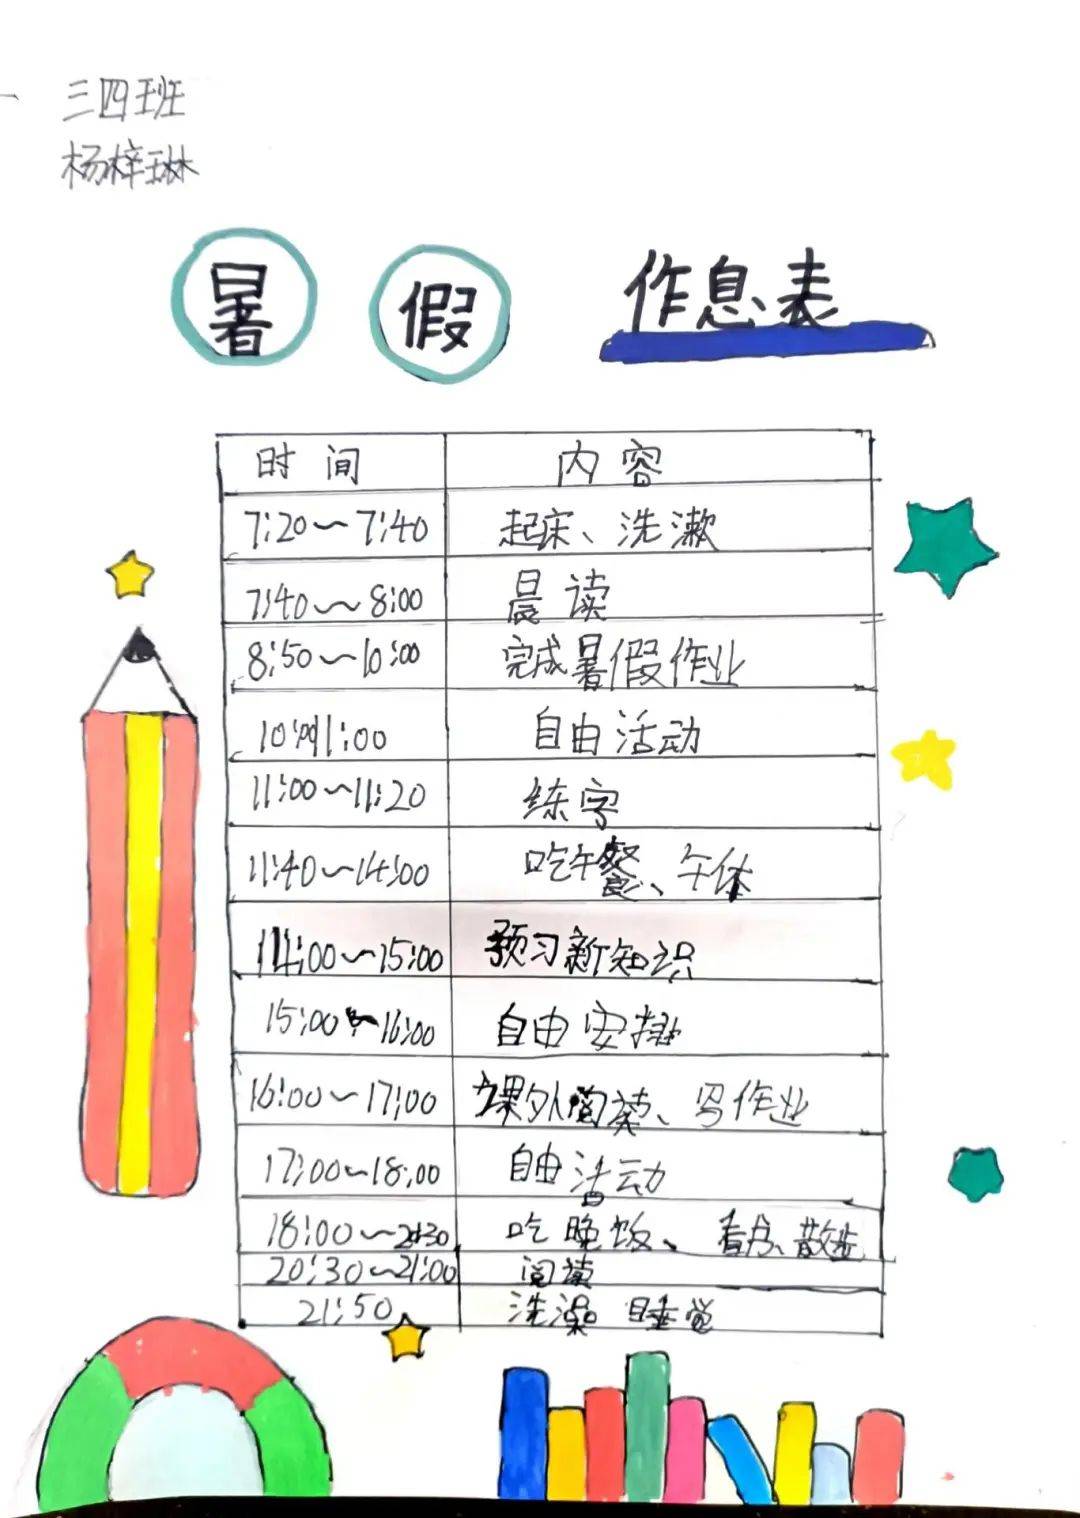 三四班
杨梓琳
暑 假 作息表
时间 内容
7:20~7:40 起床、洗漱
7:40~8:00 晨读
8:50~10:00 完成暑假作业
11:00 自由活动
11:00~11:20 练字
11:40~14:00 吃午餐、午休
14:00~15:00 预习新知识
15:00~16:00 自由安排
16:00~17:00 课外阅读、写作业
17:00~18:00 自由活动
18:00~ 吃晚饭、散步
20:30~21:00 阅读
21:50 洗澡 睡觉